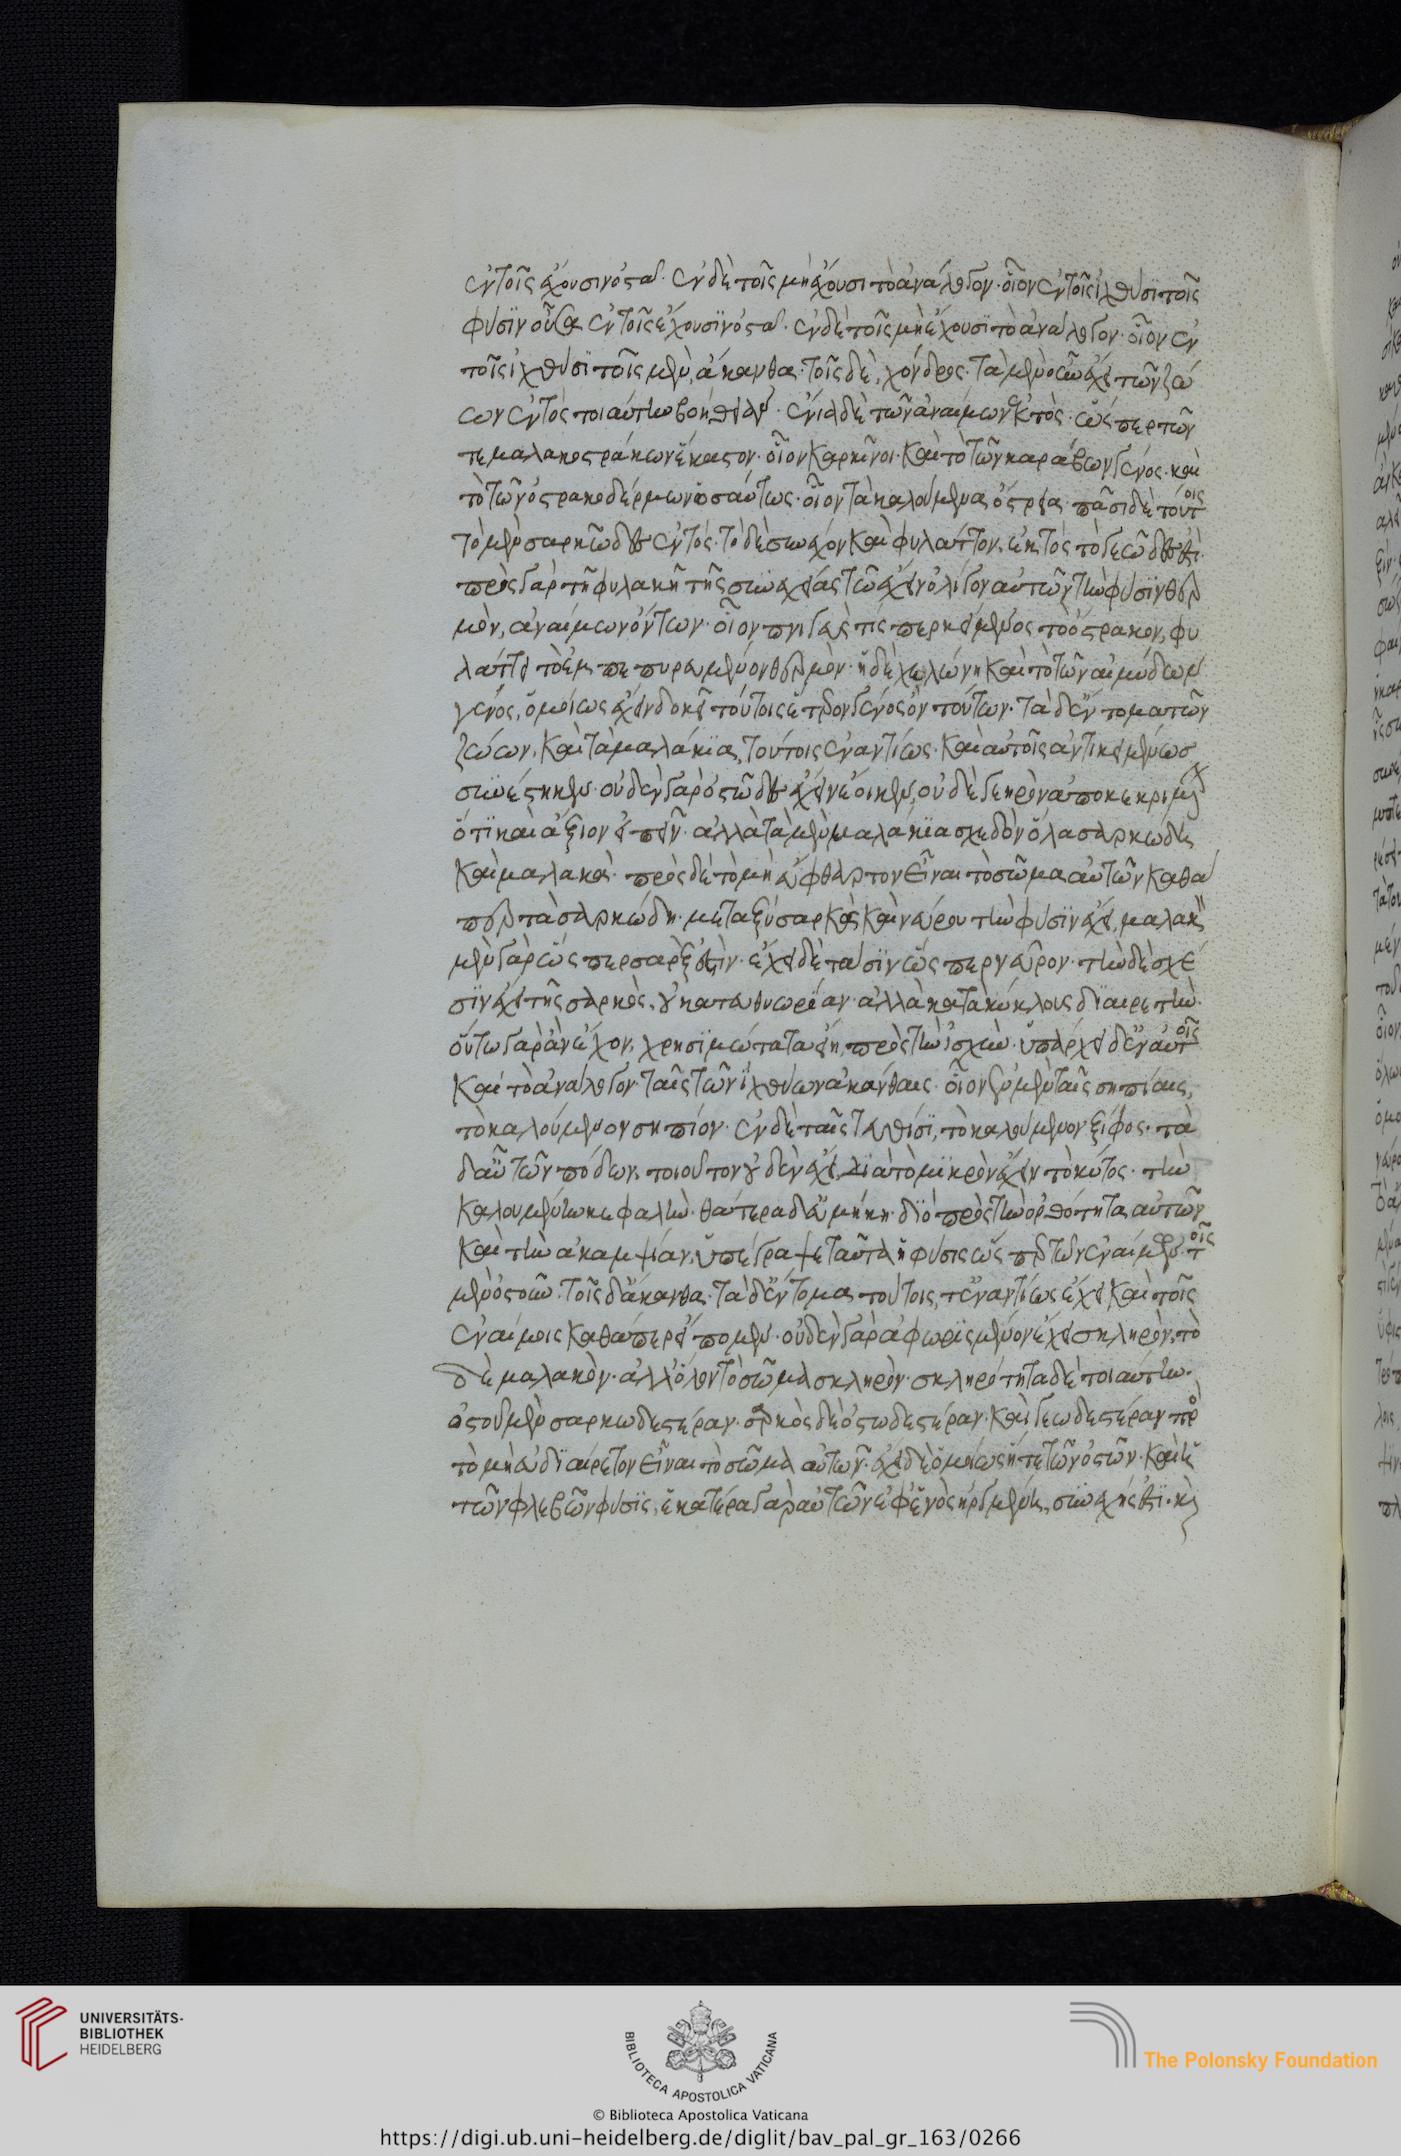 ἐν τοῖς ἔχουσιν ὀστᾶ· ἐν δὲ τοῖς μὴ ἔχουσι τὸ ἀνάλογον· οἷον ἐν τοῖς ἰχθύσι τοῖς
φύσιν οὖσα ἐν τοῖς ἔχουσιν ὀστᾶ· ἐν δὲ τοῖς μὴ ἔχουσι τὸ ἀνάλογον· οἷον ἐν
τοῖς ἰχθύσι τοῖς μὲν, ἄκανθα· τοῖς δὲ, χόνδρος· τὰ μὲν οὖν ἔχει τῶν ζώ
ων ἐντὸς τοιαύτην βοήθειαν· ἔνια δὲ τῶν ἀναίμων ἐκτὸς· ὥσπερ τῶν
τε μαλακοστράκων ἕκαστον· οἷον καρκῖνοι· καὶ τὸ τῶν καράβων γένος· καὶ
τὸ τῶν ὀστρακοδέρμων ὡσαύτως· οἷον τὰ καλούμενα ὄστρεα· πᾶσι δὲ τούτοις
τὸ μὲν σαρκῶδες ἐντός· τὸ δὲ συνέχον καὶ φυλάττον, ἐκτὸς τὸ γεῶδές ἐστι·
πρὸς γὰρ τῇ φυλακῇ τῆς συνεχείας τῷ ἔχειν ὀλίγον αὐτῶν τὴν φύσιν θερ
μὸν, ἀναίμων ὄντων· οἷον πνιγεύς τις περικείμενος τὸ ὄστρακον, φυ
λάττει τὸ ἐμπεπυρευμένον θερμὸν· ἡ δὲ χελώνη καὶ τὸ τῶν αἱμύδων
γένος, ὁμοίως ἔχειν δοκεῖ τούτοις ἕτερον γένος ὂν τούτων· τὰ δ' ἔντομα τῶν
ζώων, καὶ τὰ μαλάκια, τούτοις ἐναντίως· καὶ αὐτοῖς ἀντικειμένως
συνέστηκεν· οὐδὲν γὰρ ὀστῶδες ἔχειν ἔοικεν, οὐδὲ γεηρὸν ἀποκεκριμ
ὅτι καὶ ἄξιον εἰπεῖν· ἀλλὰ τὰ μὲν μαλάκια σχεδὸν ὅλα σαρκώδη
καὶ μαλακὰ· πρὸς δὲ τὸ μὴ εὔφθαρτον εἶναι τὸ σῶμα αὐτῶν καθά
περ τὰ σαρκώδη· μεταξὺ σαρκὸς καὶ νεύρου τὴν φύσιν ἔχει, μαλακὴ
μὲν γὰρ ὥσπερ σάρξ ἐστὶν· ἔχει δὲ τάσιν ὥσπερ νεῦρον· τὴν δὲ σχέ
σιν ἔχει τῆς σαρκὸς, οὐ κατ' εὐθυωρίαν· ἀλλὰ κατὰ κύκλους διαιρετὴν·
οὕτω γὰρ ἂν ἔχον, χρησιμώτατα εἴη, πρὸς τὴν ἰσχὺν· ὑπάρχει δ' ἐν αὐτοῖς
καὶ τὸ ἀνάλογον ταῖς τῶν ἰχθύων ἀκάνθαις· οἷον ἐν μὲν ταῖς σηπίαις,
τὸ καλούμενον σηπίον· ἐν δὲ ταῖς τευθίσι, τὸ καλούμενον ξίφος· τὸ
δ' αὖ τῶν πόδων, τοιοῦτον οὐδὲν ἔχει, διὰ τὸ μικρὸν ἔχειν τὸ κύτος· τὴν
καλουμένην κεφαλὴν· θάτερα δ' εὐμήκη· διὸ πρὸς τὴν ὀρθότητα αὐτῶν
καὶ τὴν ἀκαμψίαν, ὑπέγραψε ταῦτα ἡ φύσις ὥσπερ τῶν ἐναίμων τοῖς
μὲν ὀστοῦν· τοῖς δ' ἄκανθα· τὰ δ' ἔντομα τούτοις, τ' ἐναντίως ἔχει καὶ τοῖς
ἐναίμοις καθάπερ εἴπομεν· οὐδὲν γὰρ ἀφωρισμένον ἔχει σκληρὸν, τὸ
δὲ μαλακὸν· ἀλλ' ὅλον τὸ σῶμα σκληρὸν· σκληρότητα δὲ τοιαύτην·
ὀστοῦ μὲν σαρκωδεστέραν· σαρκὸς δὲ ὀστωδεστέραν· καὶ γεωδεστέραν πρὸ
τὸ μὴ εὐδιαίρετον εἶναι τὸ σῶμα αὐτῶν· ἔχει δὲ ὁμοίως ἥ τε τῶν ὀστῶν· καὶ ἡ
τῶν φλεβῶν φύσις, ἑκατέρα γὰρ αὐτῶν ἐφ' ἑνὸς ἠργμένη, συνεχής ἐστι· καὶ
UNIVERSITÄTS-
BIBLIOTHEK
HEIDELBERG
BIBLIOTECA APOSTOLICA VATICANA
The Polonsky Foundation
© Biblioteca Apostolica Vaticana
https://digi.ub.uni-heidelberg.de/diglit/bav_pal_gr_163/0266